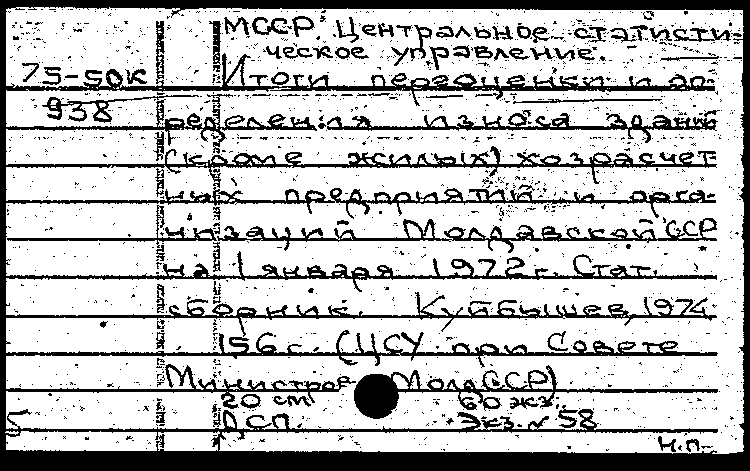 МССР. Центральное статисти-
ческое управление.
75-50к Итоги переоценки и оп-
938
ределения износа зданий
(кроме жилых) хозрасчет-
ных предприятий и орга-
низаций Молдавской ССР
на 1 января 1972 г. Стат.
сборник. Куйбышев, 1974.
156 с. (ЦСУ при Совете
Министров Молд.ССР)
20 cm 60 экз.
ДСП. Экз. № 58
5
н.п.